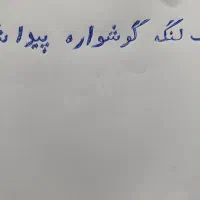 لنگه گوشواره پیدا